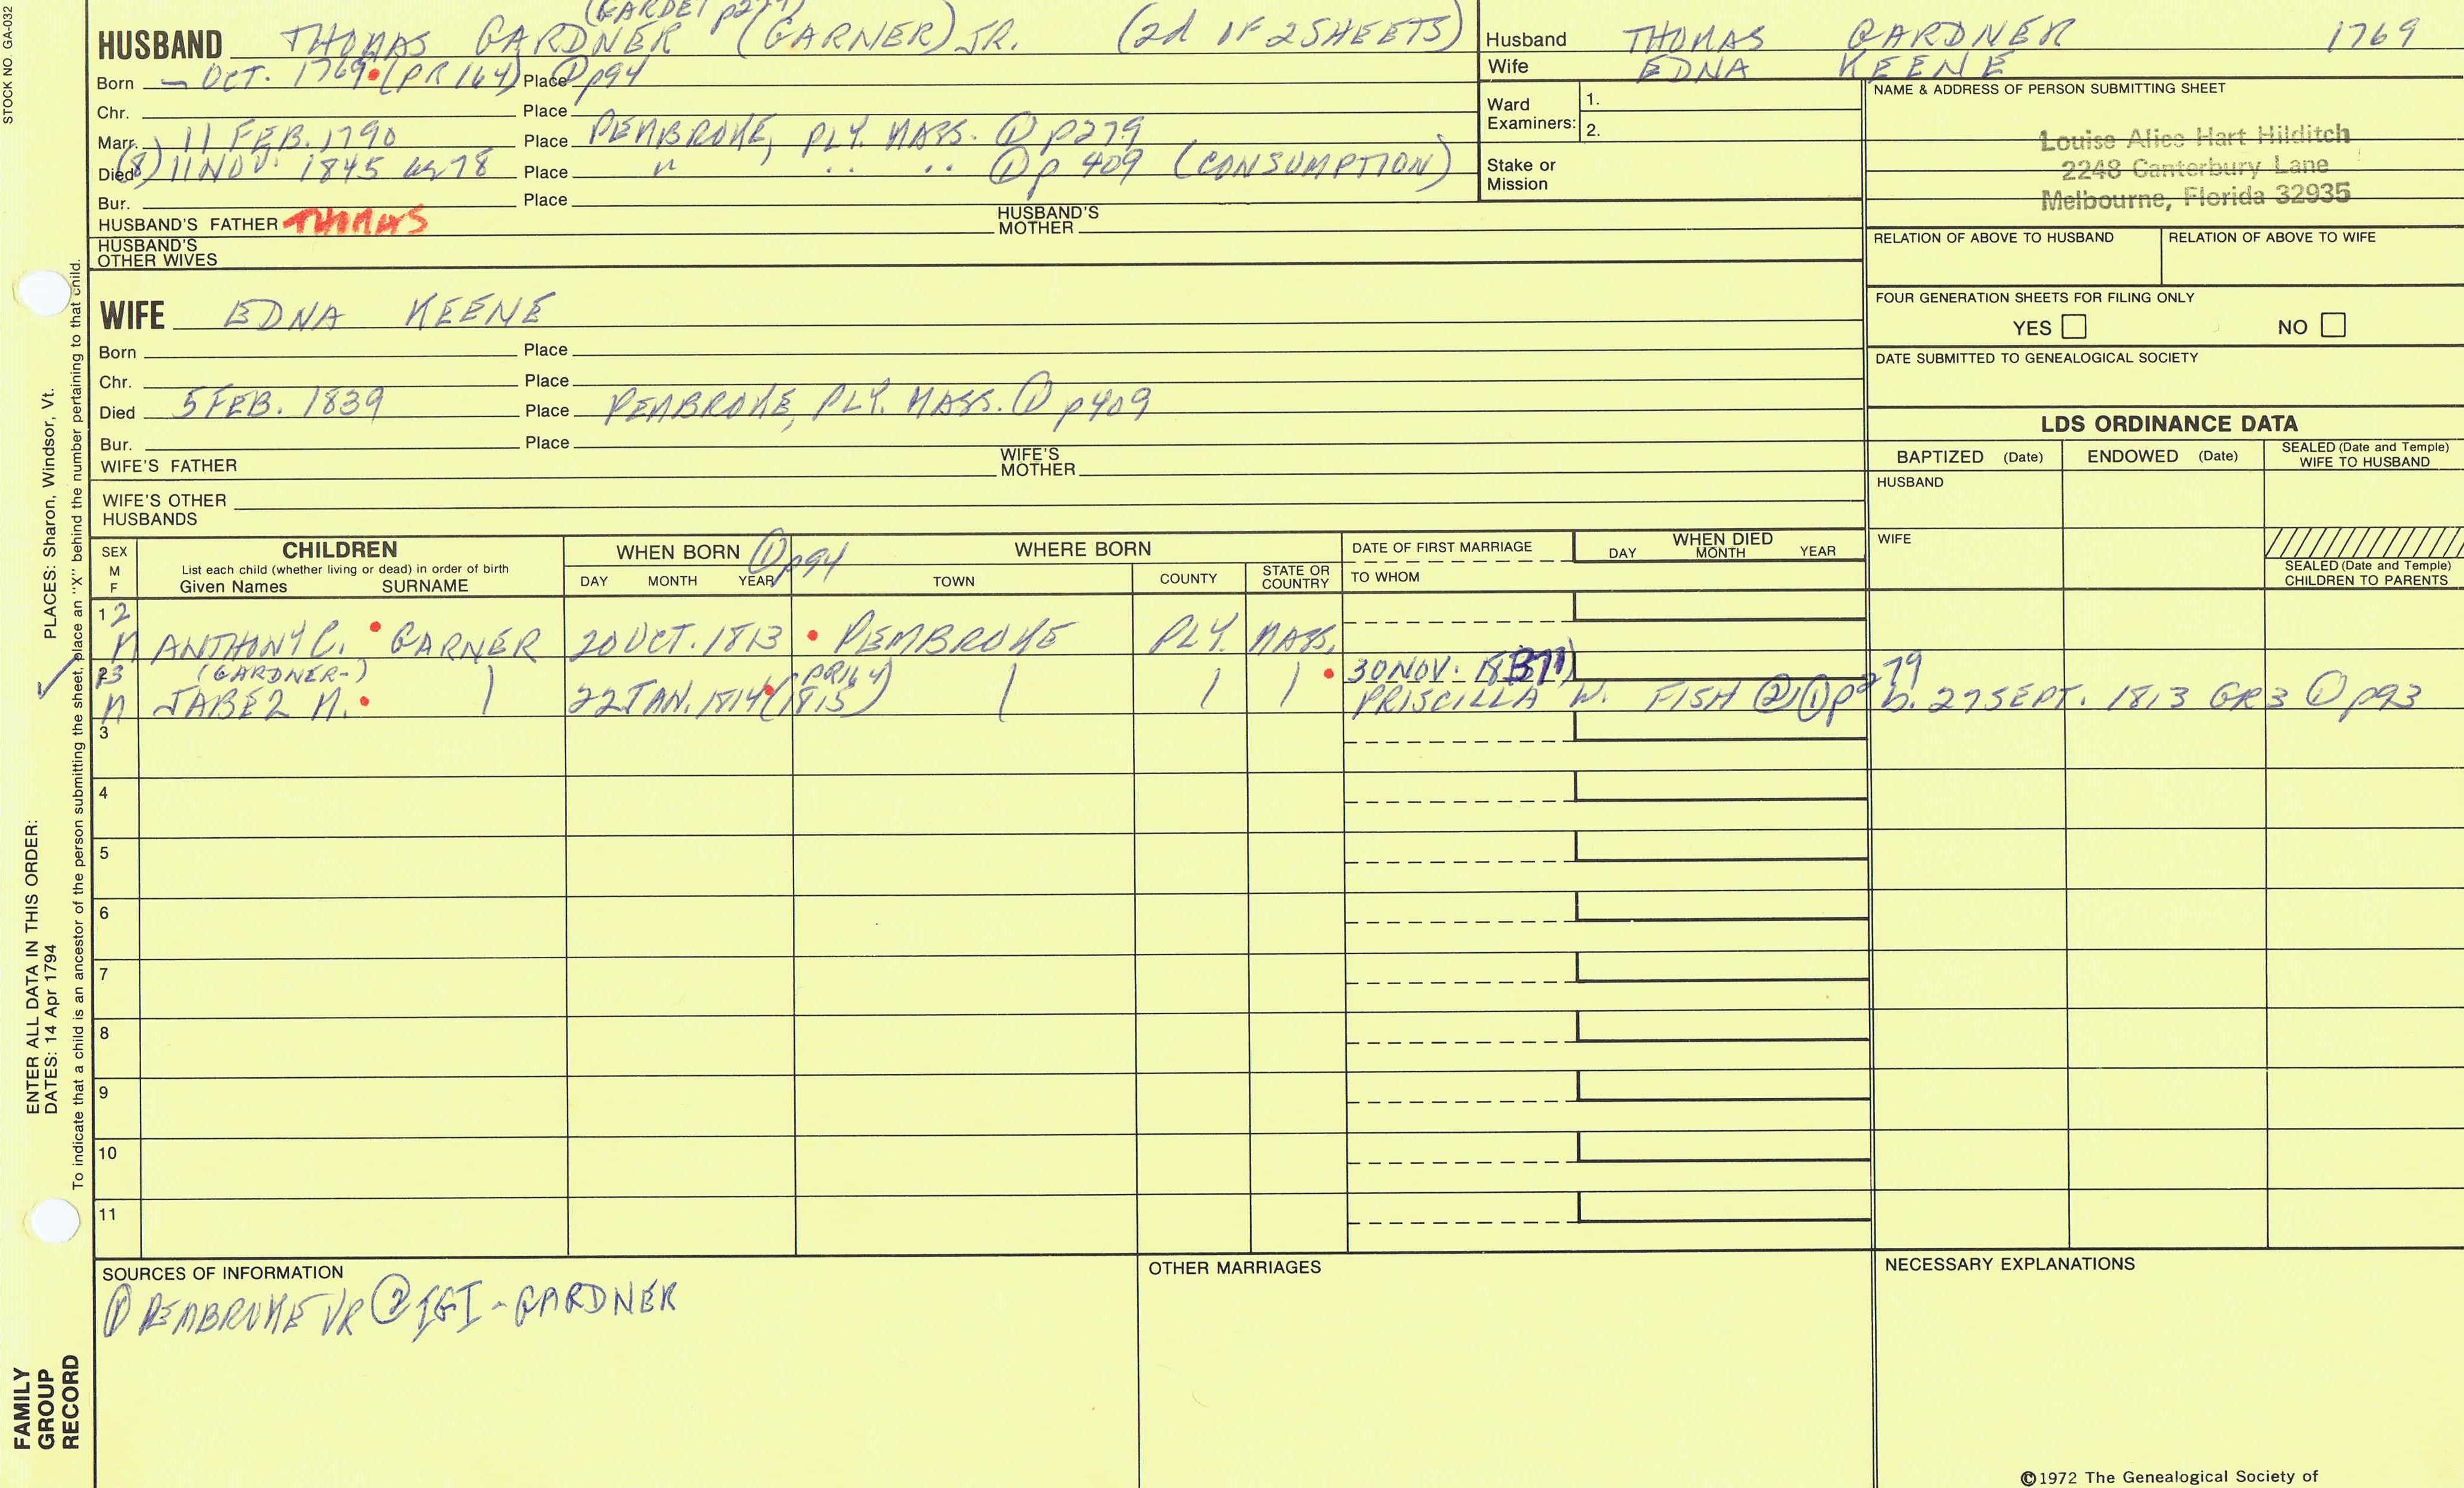 STOCK NO. GA-032
(GARDET p279)
HUSBAND THOMAS GARDNER (GARNER) JR. (2d OF 2 SHEETS)
Born – OCT. 1769 (PR 164) Place ① p94
Chr. Place
Marr. 11 FEB. 1790 Place PEMBROKE, PLY. MASS. ① p279
Died (8) 11 NOV. 1845 78 Place " " " ① p 409 (CONSUMPTION)
Bur. Place
HUSBAND'S FATHER THOMAS HUSBAND'S MOTHER
HUSBAND'S OTHER WIVES
Husband THOMAS GARDNER 1769
Wife EDNA KEENE
Ward Examiners: 1.
2.
Stake or Mission
NAME & ADDRESS OF PERSON SUBMITTING SHEET
Louise Alice Hart Hilditch
2248 Canterbury Lane
Melbourne, Florida 32935
RELATION OF ABOVE TO HUSBAND RELATION OF ABOVE TO WIFE
FOUR GENERATION SHEETS FOR FILING ONLY
YES NO
DATE SUBMITTED TO GENEALOGICAL SOCIETY
WIFE EDNA KEENE
Born Place
Chr. Place
Died 5 FEB. 1839 Place PEMBROKE, PLY. MASS. ① p409
Bur. Place
WIFE'S FATHER WIFE'S MOTHER
WIFE'S OTHER HUSBANDS
LDS ORDINANCE DATA
BAPTIZED (Date) ENDOWED (Date) SEALED (Date and Temple) WIFE TO HUSBAND
HUSBAND
WIFE
SEALED (Date and Temple) CHILDREN TO PARENTS
SEX M F
CHILDREN
List each child (whether living or dead) in order of birth
Given Names SURNAME
WHEN BORN ① p94
DAY MONTH YEAR
WHERE BORN
TOWN COUNTY STATE OR COUNTRY
DATE OF FIRST MARRIAGE
TO WHOM
WHEN DIED
DAY MONTH YEAR
1 2
M ANTHONY C. GARNER 20 OCT. 1813 PEMBROKE PLY. MASS.
3 (GARDNER-) (PR164) 30 NOV. 279
M JABEZ M. 22 JAN. 1814 (1815) PRISCILLA W. FISH ② ① p b. 27 SEPT. 1813 GR3 ① p93
3
4
5
6
7
8
9
10
11
SOURCES OF INFORMATION
① PEMBROKE VR ② IGI - GARDNER
OTHER MARRIAGES
NECESSARY EXPLANATIONS
©1972 The Genealogical Society of
PLACES: Sharon, Windsor, Vt.
ENTER ALL DATA IN THIS ORDER:
DATES: 14 Apr 1794
To indicate that a child is an ancestor of the person submitting the sheet, place an "X" behind the number pertaining to that child.
FAMILY
GROUP
RECORD